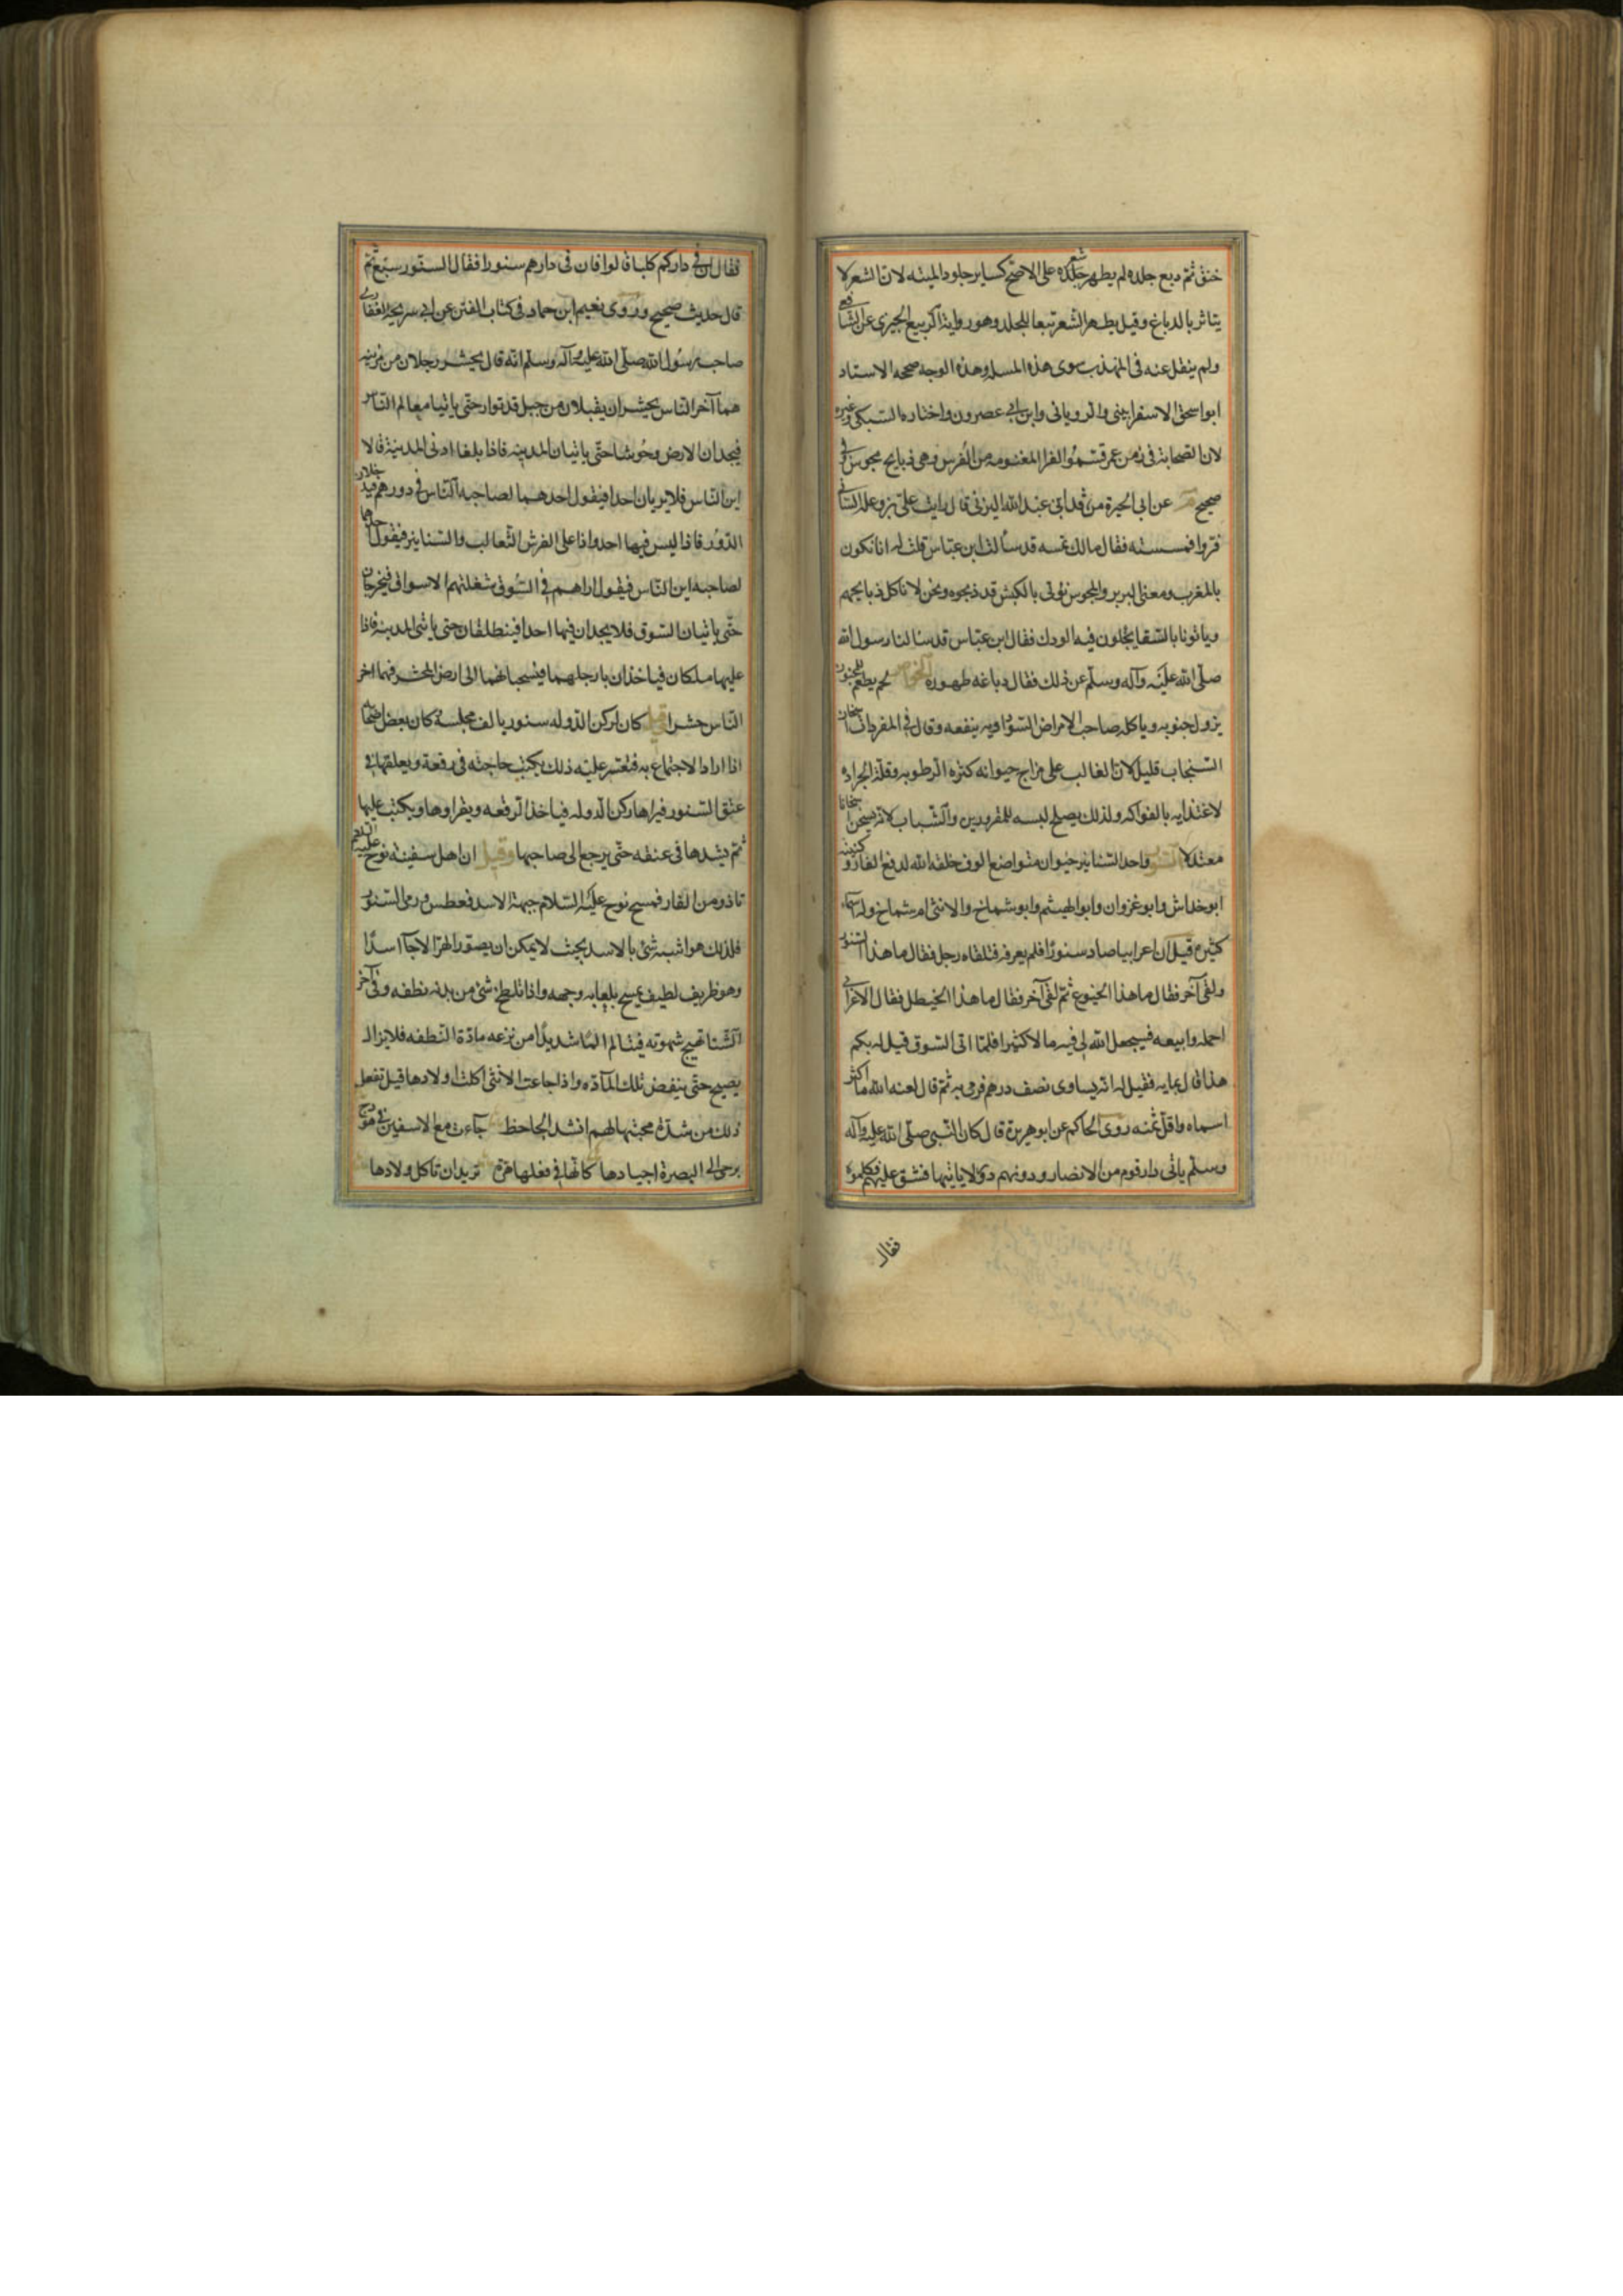 خنق ثمّ دبغ جلده لم يطهر شعر جلده على الاصحّ كساير جلود الميته لانّ الشعر لا
يتاثر بالدباغ وقيل يطهر الشعر تبعا للجلد وهو رواية الربيع الجيزى عن الشافعى
ولم ينقل عنه فى المهذب سوى هذه المسله وهذه الوجه صححه الاستاد
ابو اسحق الاسفراينى والرويانى وابن ابى عصرون واختاره السبكى وغيره
لان الصحابة فى زمن عمر قسّموا الفرا المغنومه من الفرس وهى ذبايح مجوس فى
صحيح عن ابى الخير مرثد ابن عبد الله اليزنى قال رايت على بن وعله السبائى
فروا فمسسته فقال مالك تمسه قد سألت ابن عبّاس قلت له انا نكون
بالمغرب ومعنا البربر والمجوس نؤتى بالكبش قد ذبحوه ونحن لا ناكل ذبايحهم
وياتونا بالسّقا يجعلون فيه الودك فقال ابن عبّاس قد سالنا رسول الله
صلّى الله عليه وآله وسلّم عن ذلك فقال دباغه طهوره الخواص لحم يطعم للمجنون
يزول جنونه وياكله صاحب الامراض السّوداويه ينفعه وقال فى المفردات
السّنجاب قليل لانّ الغالب على مزاج حيوانه كثره الرطوبه وقلّة الحراره
لاغتذايه بالفواكه ولذلك يصلح لبسه للمحرورين والشّباب لانه يسخن
معتدلا السنور واحد السّنانير حيوان متواضع الوف خلقه الله لدفع الفار وكنيته
ابو خداش وابو غزوان وابو الهيثم وابو شماخ والانثى ام شماخ وله اسماء
كثيره قيل انّ اعرابيا صاد سنورًا فلم يعرفه فتلقاه رجل فقال ما هذا السّنور
ولقى آخر فقال ما هذا الخيدع ثمّ لقى آخر فقال ما هذا الخيطل فقال الاعرابى
احمله وابيعه فيجعل الله لى فيه مالا كثيرا فلمّا اتى السّوق قيل له بكم
هذا قال بمايه فقيل له انّه يساوى نصف درهم فرمى به ثمّ قال لعنه الله ما اكثر
اسماه واقلّ ثمنه روى الحاكم عن ابو هريرة قال كان النّبى صلّى الله عليه وآله
وسلّم ياتى دار قوم من الانصار ودونهم دور لا ياتيها فشق عليهم فكلموه
فقال
فقال ان فى داركم كلبا قالوا فان فى دارهم سنورا فقال السنّور سبع ثمّ
قال حديث صحيح وروى نعيم ابن حماد فى كتاب الفتن عن ابى سريحة الغفارى
صاحب رسول الله صلّى الله عليه وآله وسلّم انّه قال يحشر رجلان من مزينه
هما آخر النّاس يحشران يقبلان من جبل قد توار حتّى ياتيا معالم النّاس
فيجدان الارض وحوشا حتّى ياتيان المدينه فاذا بلغا ادنى المدينة قالا
اين النّاس فلا يريان احدا فيقول احدهما لصاحبه النّاس فى دورهم فيدخلان
الدّور فاذا ليس فيها احد واذا على الفرش الثعالب والسّنانير فيقول احدهما
لصاحبه اين النّاس فيقول اراهم فى السّوق شغلتهم الاسواق فيخرجان
حتّى ياتيان السّوق فلا يجدان فيها احدا فينطلقان حتى ياتى المدينه فاذا
عليها ملكان فياخذان بارجلهما فيسحبانهما الى ارض المحشر فهما اخر
النّاس حشرا قيل كان لركن الدّوله سنور يالف مجلسه كان بعض اصحابه
اذا اراد الاجتماع به فتعسر عليه ذلك يكتب حاجته فى رقعة ويعلقها فى
عنق السّنور فيراها ركن الدوله فياخذ الرقعه ويقراوها ويكتب عليها
ثمّ يشدها فى عنقه حتّى يرجع الى صاحبها وقيل ان اهل سفينه نوح عليه السّلم
تاذو من الفار فمسح نوح عليه السّلام جبهة الاسد فعطس ورمى السّنور
فلذلك هو اشبه شئ بالاسد بحيث لا يمكن ان يصوّر الهرّ الا جا اسدًا
وهو ظريف لطيف يمسح بلعابه وجهه واذا تلطخ شئ من بدنه نظفه وفى آخر
الشّتا تهيج شهوته فيتالم المًا شديدًا من نزعه مادّة النّطفه فلا يزال
يصيح حتى ينفض تلك المآدّه واذا جاعت الانثى اكلت اولادها قيل تفعل
ذلك من شدّة محبتها لهم انشد الجاحظ جآءت مع الاسفين فى هودج
يرجى الى البصرة اجيادها كانّها فى فعلها هرّه تريد ان تاكل ولادها